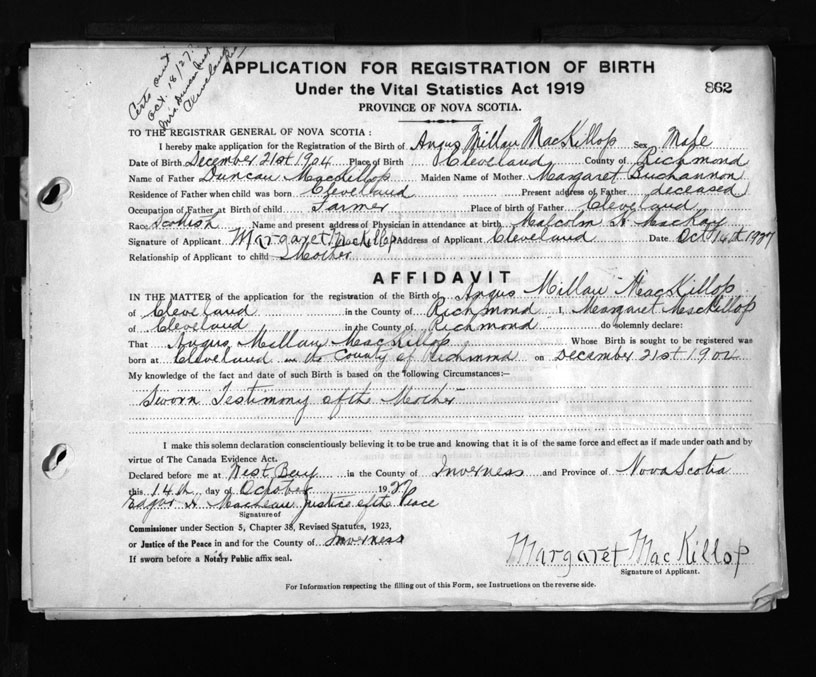 Certs sent
Oct. 18/27.
Mrs Duncan
Cleveland
APPLICATION FOR REGISTRATION OF BIRTH
Under the Vital Statistics Act 1919
862
PROVINCE OF NOVA SCOTIA.
TO THE REGISTRAR GENERAL OF NOVA SCOTIA :
I hereby make application for the Registration of the Birth of Angus Millan MacKillop Sex Male
Date of Birth December 21st 1904 Place of Birth Cleveland County of Richmond
Name of Father Duncan MacKillop Maiden Name of Mother Margaret Buchannon
Residence of Father when child was born Cleveland Present address of Father deceased
Occupation of Father at Birth of child Farmer Place of birth of Father Cleveland
Race Scotish Name and present address of Physician in attendance at birth Malcolm H MacKay
Signature of Applicant Margaret MacKillop Address of Applicant Cleveland Date Oct 14th 1927
Relationship of Applicant to child Mother
AFFIDAVIT
IN THE MATTER of the application for the registration of the Birth of Angus Millan MacKillop
of Cleveland in the County of Richmond I, Margaret MacKillop
of Cleveland in the County of Richmond do solemnly declare:
That Angus Millan MacKillop Whose Birth is sought to be registered was
born at Cleveland in the County of Richmond on December 21st 1904
My knowledge of the fact and date of such Birth is based on the following Circumstances:—
Sworn Testimony of the Mother
I make this solemn declaration conscientiously believing it to be true and knowing that it is of the same force and effect as if made under oath and by
virtue of The Canada Evidence Act.
Declared before me at West Bay in the County of Inverness and Province of Nova Scotia
this 14th day of October 1927
Edgar A. MacLean Justice of the Peace
Signature of
Commissioner under Section 5, Chapter 38, Revised Statutes, 1923,
or Justice of the Peace in and for the County of Inverness
If sworn before a Notary Public affix seal.
Margaret MacKillop
Signature of Applicant.
For Information respecting the filling out of this Form, see Instructions on the reverse side.